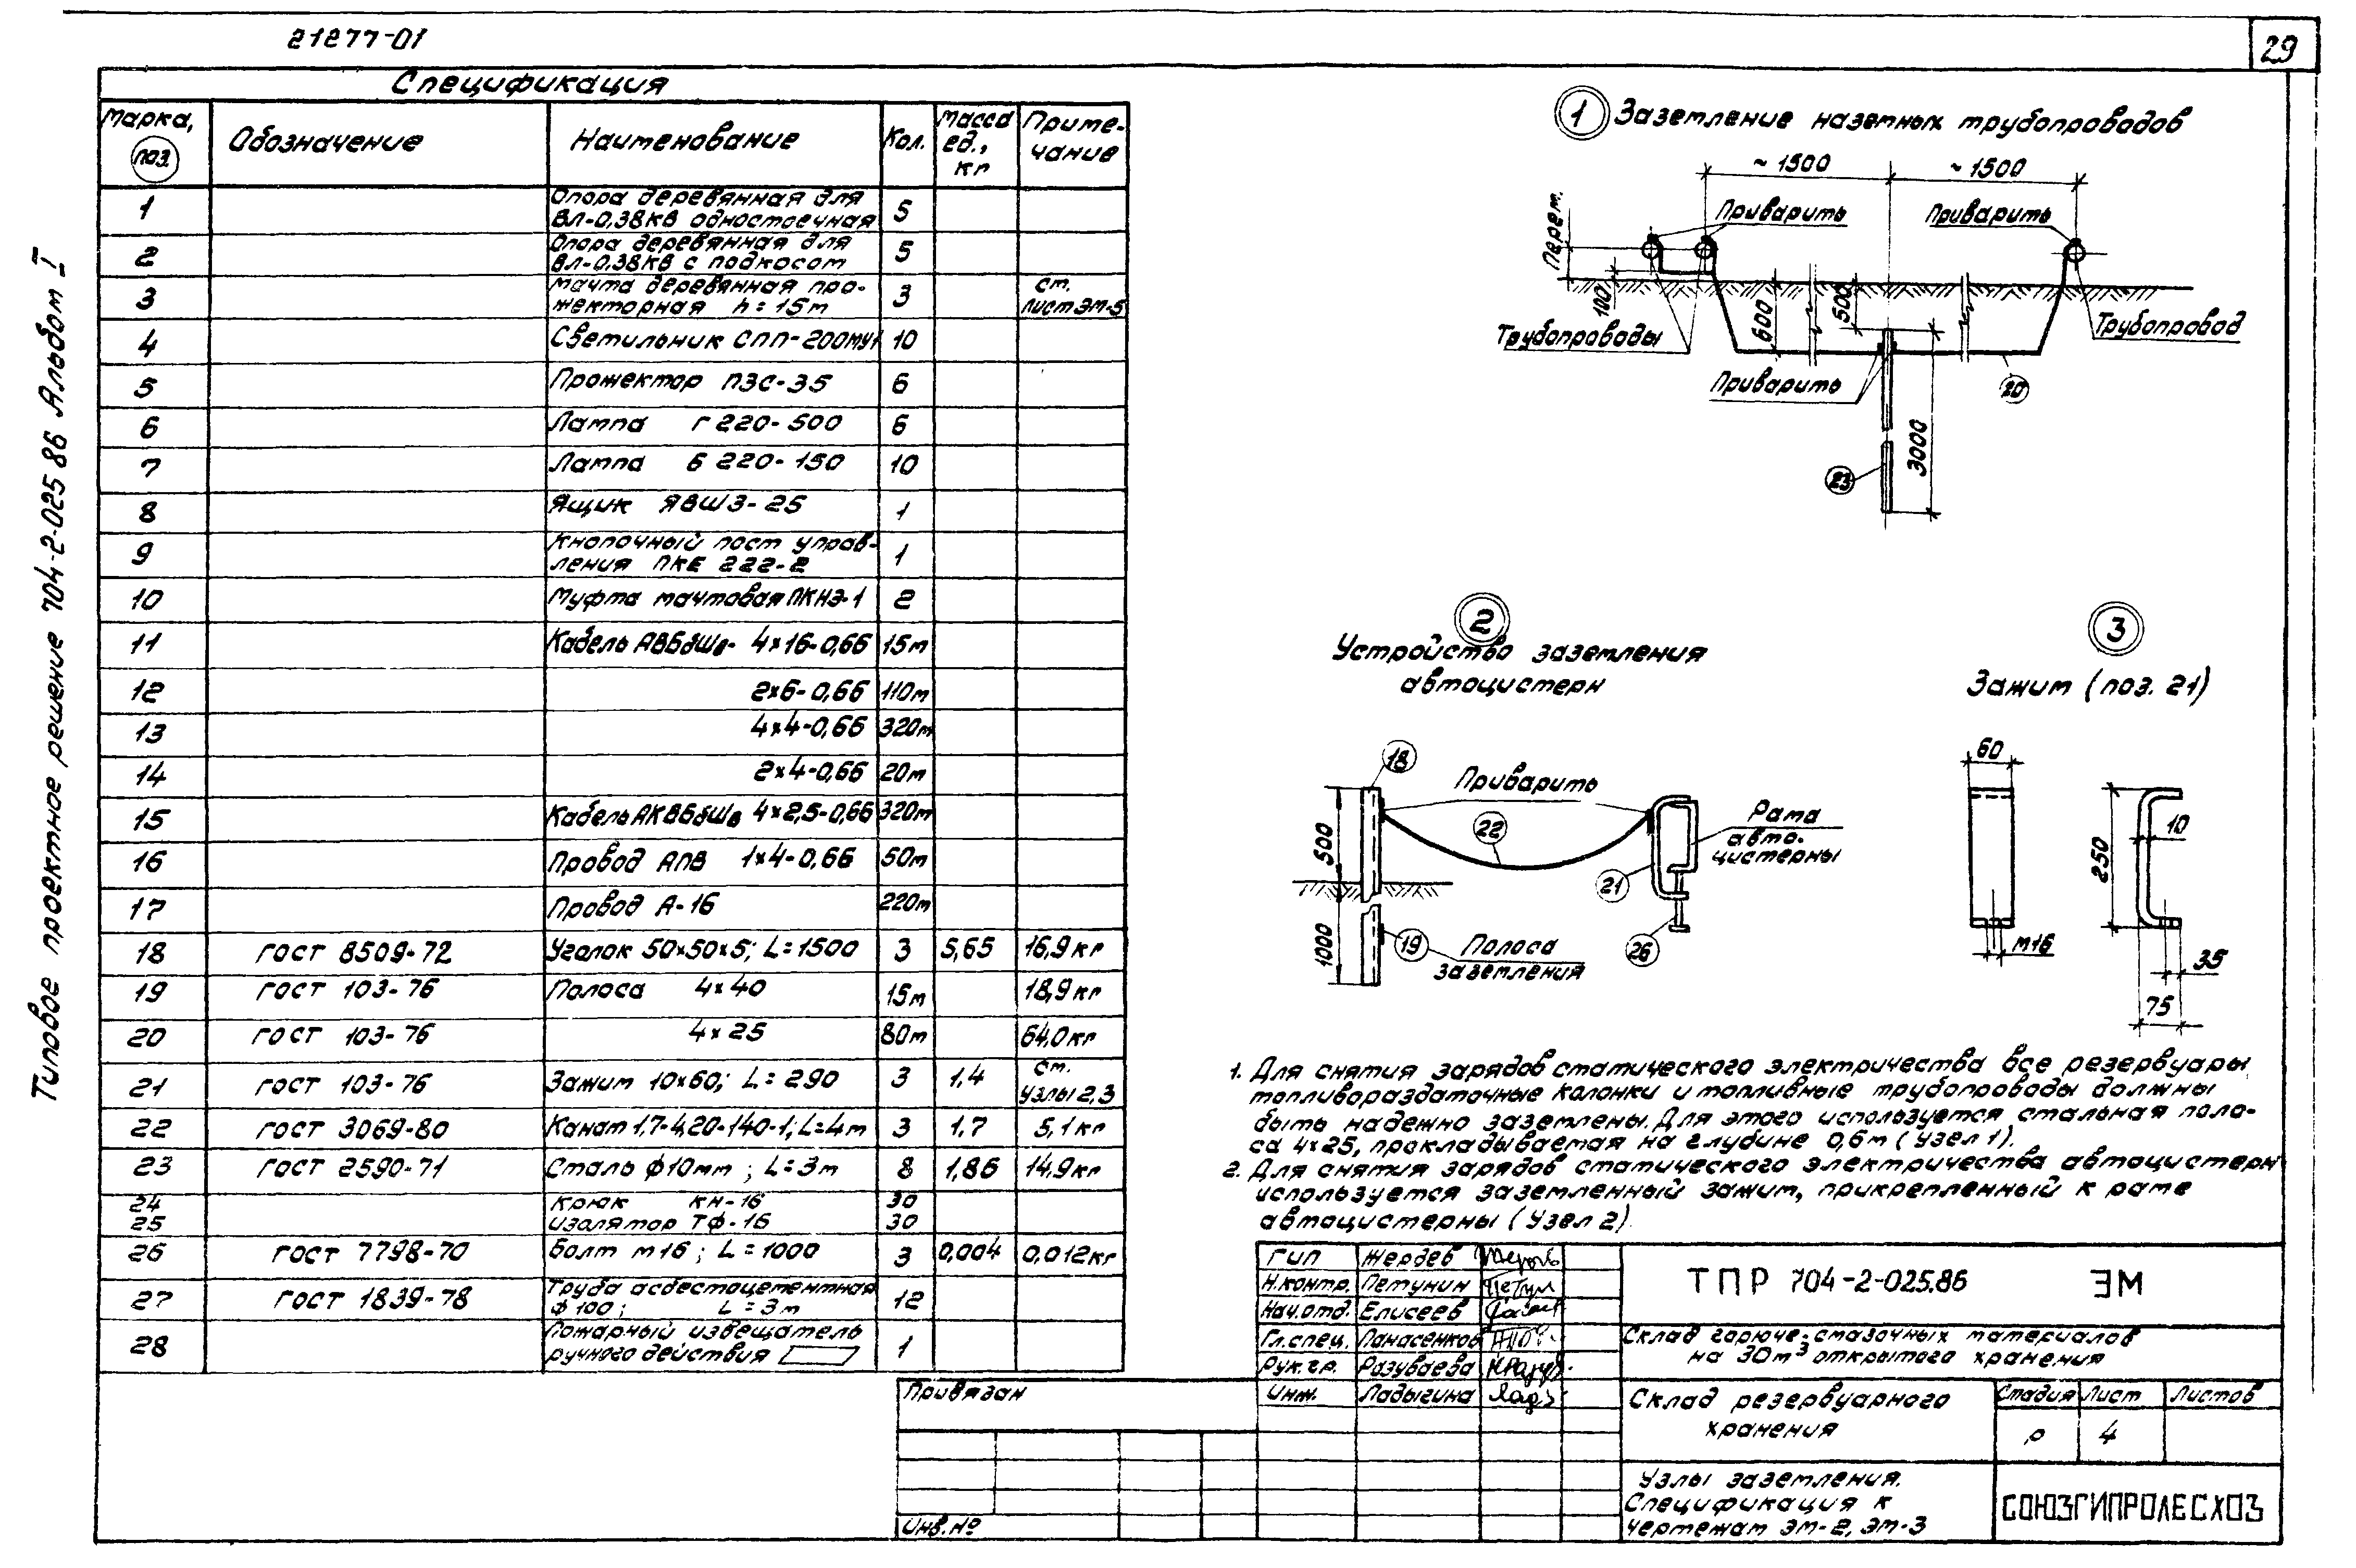 21277-01
29
Типовое проектное решение 704-2-025 86 Альбом I
Спецификация
Марка, поз. Обозначение Наименование Кол. Масса ед., кг Приме-чание
1 Опора деревянная для
ВЛ-0,38кв одностоечная 5
2 Опора деревянная для
ВЛ-0,38кв с подкосом 5
3 Мачта деревянная про-
жекторная h=15м 3 см. лист ЭМ-5
4 Светильник СПП-200МУ1 10
5 Прожектор ПЗС-35 6
6 Лампа Г 220-500 6
7 Лампа Б 220-150 10
8 Ящик ЯВШ3-25 1
9 Кнопочный пост управ-
ления ПКЕ 222-2 1
10 Муфта мачтовая ПКНЭ-1 2
11 Кабель АВБбШв- 4×16-0,66 15м
12 2×6-0,66 110м
13 4×4-0,66 320м
14 2×4-0,66 20м
15 Кабель АКВБбШв 4×2,5-0,66 320м
16 Провод АПВ 1×4-0,66 50м
17 Провод А-16 220м
18 ГОСТ 8509-72 Уголок 50×50×5; L=1500 3 5,65 16,9кг
19 ГОСТ 103-76 Полоса 4×40 15м 18,9кг
20 ГОСТ 103-76 4×25 80м 64,0кг
21 ГОСТ 103-76 Зажим 10×60; L=290 3 1,4 см. узлы 2,3
22 ГОСТ 3069-80 Канат 1,7-4,20-140-1; L=4м 3 1,7 5,1кг
23 ГОСТ 2590-71 Сталь ф10мм; L=3м 8 1,86 14,9кг
24 Крюк КН-16 30
25 изолятор ТФ-16 30
26 ГОСТ 7798-70 Болт м16; L=1000 3 0,004 0,012кг
27 ГОСТ 1839-78 Труба асбестоцементная
ф100; L=3м 12
28 Пожарный извещатель
ручного действия 1
1 Заземление наземных трубопроводов
~1500 ~1500
Перем.
Приварить Приварить
100 600 500
Трубопроводы Трубопровод
Приварить 20
3000
23
2
Устройство заземления
автоцистерн
18
Приварить
22
Рама
авто-
цистерны
500
21
1000
19 Полоса
заземления
26
3
Зажим (поз. 21)
60
10
250
М16
35
75
1. Для снятия зарядов статического электричества все резервуары,
топливораздаточные колонки и топливные трубопроводы должны
быть надежно заземлены. Для этого используется стальная поло-
са 4×25, прокладываемая на глубине 0,6м (узел 1).
2. Для снятия зарядов статического электричества автоцистерн
используется заземленный зажим, прикрепленный к раме
автоцистерны (узел 2).
ГИП Жердев
Н.контр. Петунин
Нач.отд. Елисеев
Гл.спец. Панасенков
Рук.гр. Разуваева
Инж. Ладыгина
ТПР 704-2-025.86 ЭМ
Склад горюче-смазочных материалов
на 30м³ открытого хранения
Склад резервуарного
хранения
Стадия Лист Листов
Р 4
Узлы заземления.
Спецификация к
чертежам ЭМ-2, ЭМ-3
СОЮЗГИПРОЛЕСХОЗ
Привязан
Инв.№